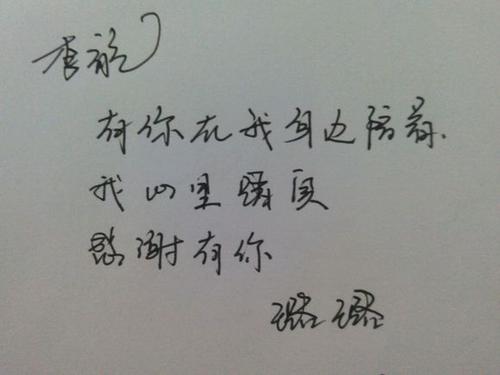 李龙
有你在我身边陪着.
我心里踏实
感谢有你
璐璐